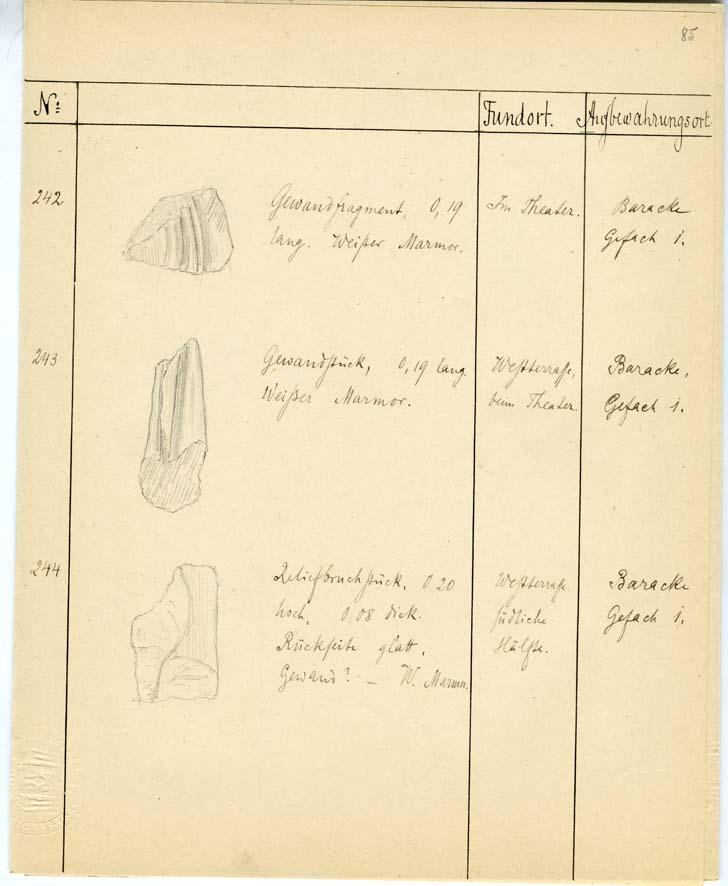 85
№: Fundort. Aufbewahrungsort
242 Gewandfragment, 0,19 Im Theater. Baracke
lang. Weißer Marmor. Gefach 1.
243 Gewandstück, 0,19 lang. Westterrasse, Baracke,
Weißer Marmor. beim Theater. Gefach 1.
244 Reliefbruchstück, 0 20 Westterrasse Baracke
hoch, 0,08 dick. südliche Gefach 1.
Rückseite glatt. Hälfte.
Gewand? — W. Marmor.